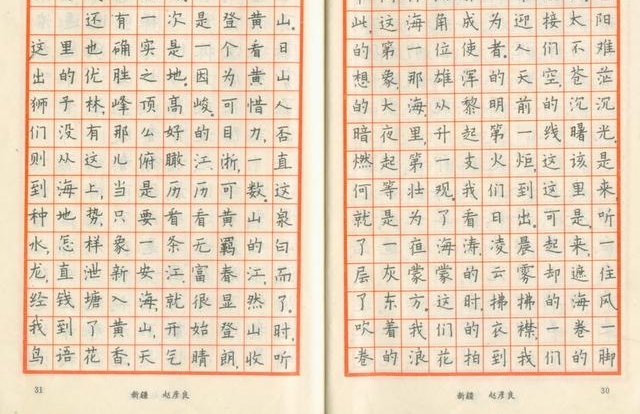 此,这海角成为迎接太阳
的第一位使者。人们不难
想象,那雄浑的天空,苍茫
的大海,从黎明前的沉沉
暗夜里,升起第一线曙光,
燃起第一支火炬,这该是
何等壮观。我们到这里来,
就是为了看日出。可是,听
了一夜海涛,凌晨起来,一
层灰蒙蒙的云雾却遮住
了东方。这时,拂拂的海风
吹着我们的衣襟,一卷一
卷的浪花拍到我们的脚
新疆 赵彦良 30
还有一次是登黄山。
这里也确实是一个看日
出的优胜之地。因为黄山
狮子林,峰顶高峻。可惜人
们没有那么好的目力,否
则从这儿俯瞰江、浙,一直
到海上,当是历历可数。这
种地势,只要看看黄山泉
水,怎样象一条无羁的白
龙,直泄新安江、富春江,而
经钱塘入海,就很显然了。
我到了黄山,开始登山时,
鸟语花香,天气晴朗,收听
31 新疆 赵彦良